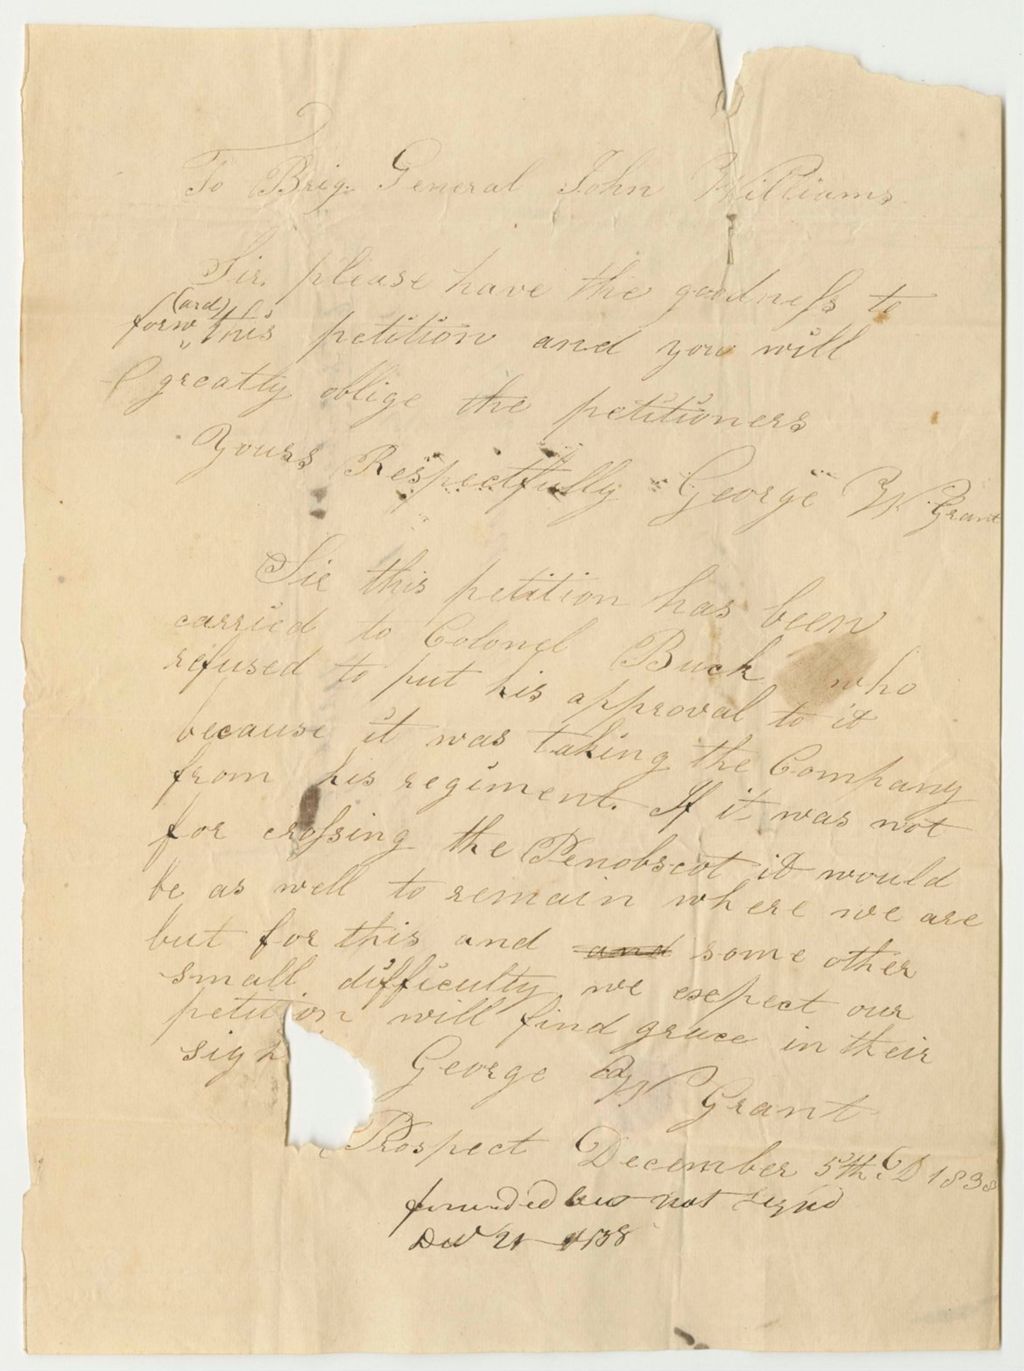 To Brig. General John Williams
Sir, please have the goodness to
forw(ard) this petition and you will
greatly oblige the petitioners
Yours Respectfully George W Grant
Sir this petition has been
carried to Colonel Buck who
refused to put his approval to it
because it was taking the Company
from his regiment. If it was not
for crossing the Penobscot it would
be as well to remain where we are
but for this and and some other
small difficulty we expect our
petition will find grace in their
sight
George W Grant
Prospect December 5th. D 1838
forwarded but not signd
Dec 21 1838